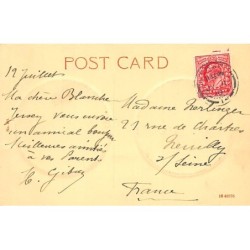 POST CARD
19 Juillet
Ma chère Blanche
Jersey vous envoie
un amical bonjour
Meilleures amitiés
à vos Parents
Madame Nerlinger
21 rue de Chartres
Neuilly
s/Seine
France